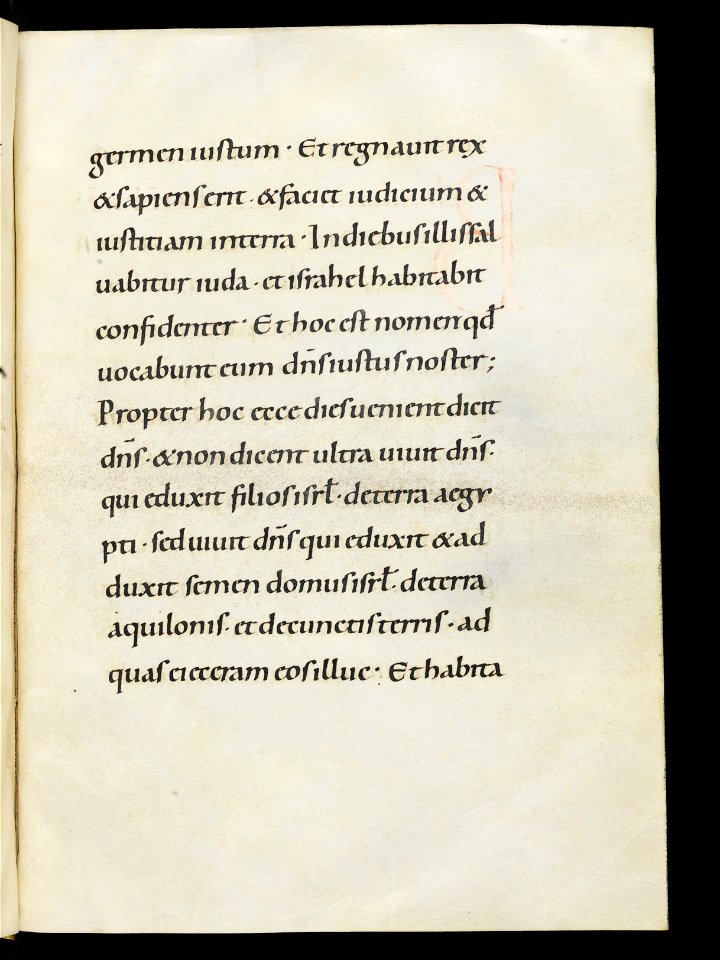 germen iustum · Et regnauit rex
& sapiens erit · & faciet iudicium &
iustitiam interra · In diebus illis sal
uabitur iuda · et israhel habitabit
confidenter · Et hoc est nomen qđ
uocabunt eum dn̄s iustus noster ;
Propter hoc ecce dies uenient dicit
dn̄s · & non dicent ultra uiuit dn̄s ·
qui eduxit filios isrł · deterra aegy
pti · sed uiuit dn̄s qui eduxit & ad
duxit semen domus isrł · deterra
aquilonis · et decunctis terris · ad
quas eieceram eos illuc · Et habita